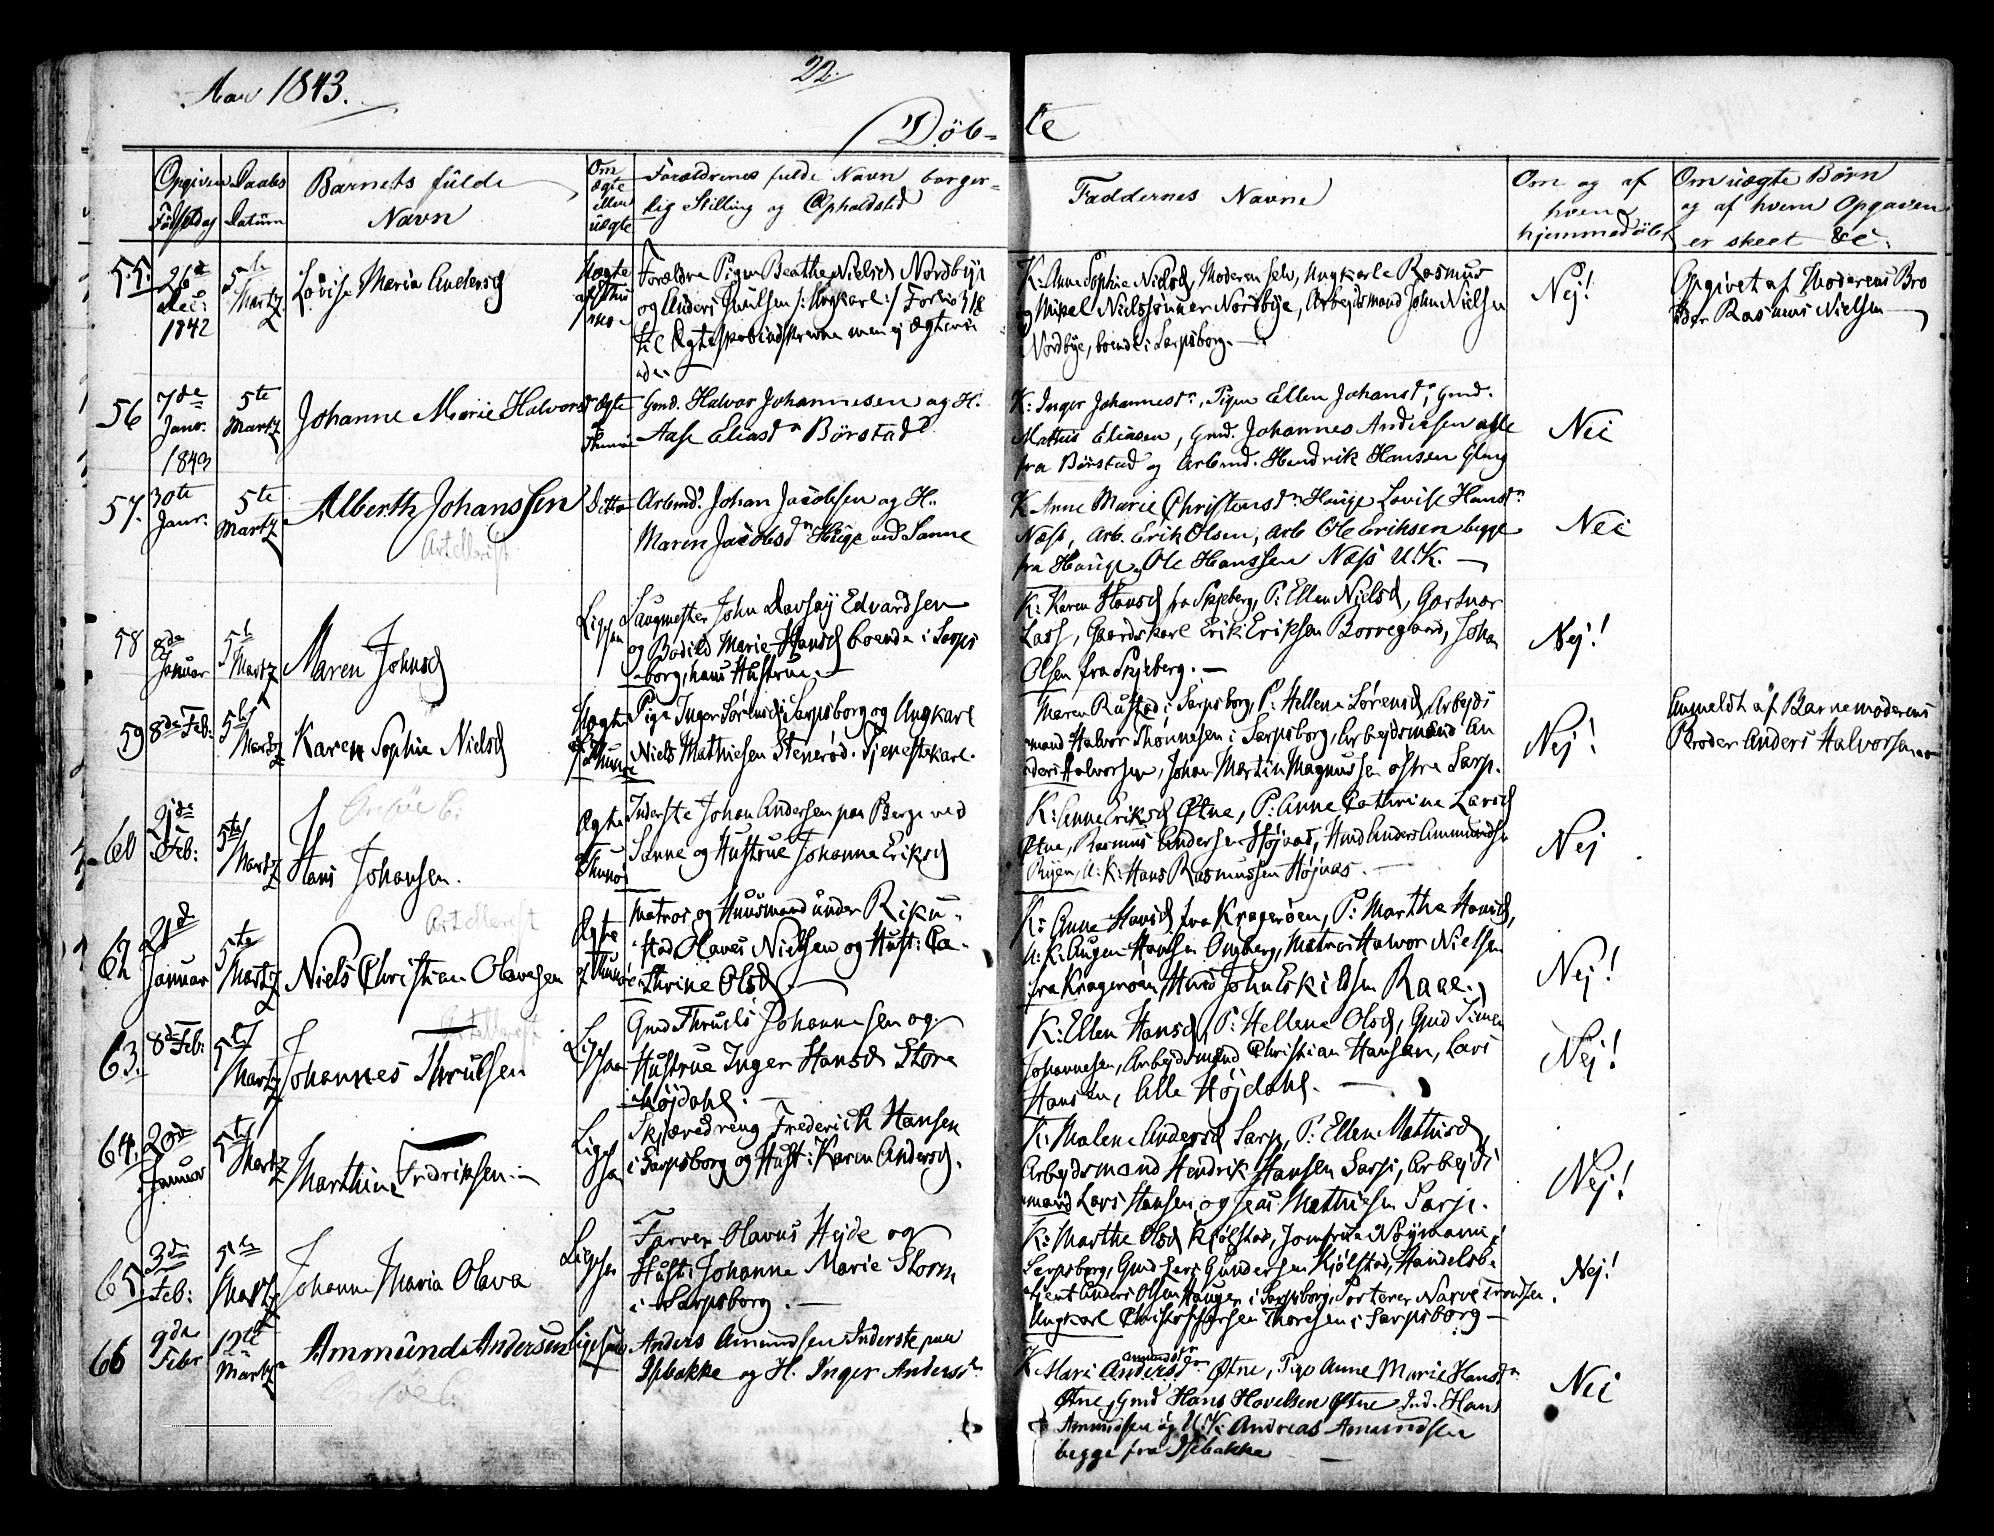 Aar 1843.
22.
Döb-
te
Opgiven Fødselsdag
Daabs Datum
Barnets fulde
Navn
Om
ægte
eller
uægte
Forældrenes fulde Navn borger-
lig Stilling og Opholdsted
Faddernes Navne
Om og af
hvem
hjemmedøbt
Om uægte Børn
og af hvem Opgaven
er skeet &c:
55. 26d Dec: 1842
5te Martz
Lovise Maria Andersd
Uægte
Forældre Pigen Beathe Nielsd Nordbye
og Anders
til Ægteskab men ej
K: Anne Sophie Nielsd, Moderen selv, Ungkarle Rasmus
og Mikel Nielssønner Nordbye, Arbejdsmand John Nielsen
Nordbye, boende i Sarpsborg.
Nej!
Opgivet af Moderens Bro
der Rasmus Nielsen
56 7de Janr. 1843
5te Martz
Johanne Marie Halvorsd
Ægte
Gmd. Halvor Johannesen og H.
Aase Eliasdr Børstad
K: Inger Johannesdr, Pigen Ellen Johansdr, Gmd.
Mathis Eliasen, Gmd. Johannes Andersen alle
fra Børstad og Arbmd. Hendrik Hansen Gleng
Nei
57. 30te Janr.
5te Martz
Alberth Johanssen
Ditto
Arbmd. Johan Jacobsen og H.
Maren Jacobsdr Hauge ved Sanne
K Anne Marie Christensdr Hauge Lovise Hansdr
Næss, Arb. Erik Olsen, Arb Ole Eriksen begge
fra Hauge og Ole Hanssen Næss U.K.
Nei
58 8de Januar
5te Martz
Maren Johnsd
Ligesaa
Saugmester John Edvardsen
og Bodild Marie Hansd boende i Sarps
borg, hans Hustrue
K: Karen Hansd fra Skjeberg, P: Ellen Nielsd, Gartner
Lass, Gaardskarl Erik Eriksen Borregaard, Johan
Olsen fra Skjeberg.
Nej!
59 8de Feb.
5te Martz
Karen Sophie Nielsd
Uægte
Pige Inger Sørensd Sarpsborg og Ungkarl
Niels Mathiesen Stenerød. Tjenestekarl.
Maren Rustad i Sarpsborg, P: Hellene Sørensd, Arbejds
mand Halvor Thønnesen i Sarpsborg, Arbejdsmand An
ders Halvorsen, Johan Martin Magnussen Sarp.
Nej!
Anmeldt af Barnemoderens
Broder Anders Halvorsen
60 2de Feb:
5te Martz
Hans Johansen.
Ægte
Inderste Johan Andersen paa Berge ved
Sanne og Hustrue Johanne Eriksd
K: Anne Eriksd Østne, P: Anne Cathrine Larsd
Østne, Rasmus Andersen Højnæs, Hmd Anders Ammundsen
U:K: Hans Rasmussen Højnæs.
Nej
62 Januar
5te Martz
Niels Christian Olavesen
Ægte
Matros og Huusmand under
Olaves Nielsen og Hust: Ca-
thrine Olsd.
K: Anne Hansd fra Kragerøen, P: Marthe Hansd,
U:K: Hansen Matros Halvor Nielsen
fra Kragerøen, Hmd John Eskildsen Raae.
Nej!
63. 8de Feb:
5te Martz
Johannes Thrulsen
Ligesaa
Gmd Thruls Johannesen og
Hustrue Inger Hansd Store
Højdahl.
K: Ellen Hansd, P: Hellene Olsd, Gmd Simen
Johannesen, Arbejdsmand Christian Hansen, Lars
Hansen, Alle Højdahl.
Nej!
64. 20de Januar
5te Martz
Marthine Fredriksen.
Ligesaa
Skjæredreng Frederick Hansen
i Sarpsborg og Hust: Karen Andersd.
K: Malene Andersd Sarp, P: Ellen Mathisd,
Arbejdsmand Hendrik Hansen Sarp, Arbejds
mand Lars Hansen og Jens Mathiesen Sarp.
Nej!
65. 3de Feb:
5te Martz
Johanne Maria Olava
Ligesaa
Farver Olavus Hejde og
Hust: Johanne Marie Storm
i Sarpsborg.
K: Marthe Olsd Kjølstad, Jomfrue Nøymann i
Sarpsborg, Gmd Lars Gundersen Kjølstad, Handelsbe-
tjent Anders Olsen Haugen i Sarpsborg, Sorterer Narve Trondsen,
Ungkarl Christoffersen Thoresen i Sarpsborg
Nej!
66 9de Febr
12te Martz
Ammund Andersen
Ligesaa
Anders Amundsen Inderste paa
Isebakke og H. Inger Andersdr
K Mari Andersdr Amundsdr Østne, Pige Anne Marie Hansdr
Østne, Gmd Hans Hovelsen Østne Ind. Hans
Ammundsen og U.K: Andreas Amundsen
begge fra Isebakke
Nei